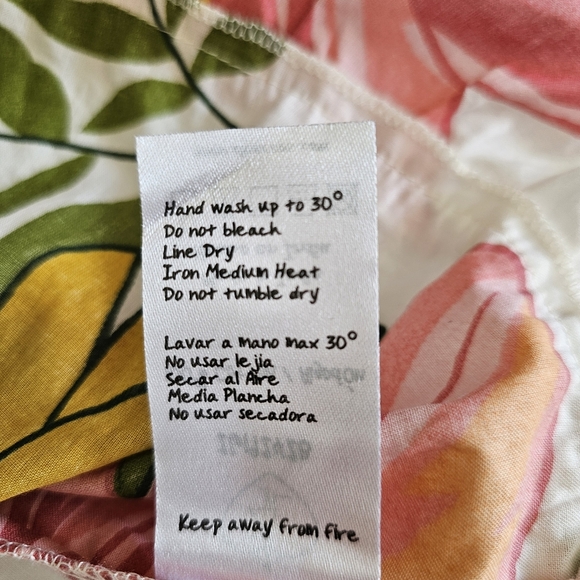 Hand wash up to 30°
Do not bleach
Line Dry
Iron Medium Heat
Do not tumble dry
Lavar a mano max 30°
No usar lejia
Secar al Aire
Media Plancha
No usar secadora
Keep away from fire